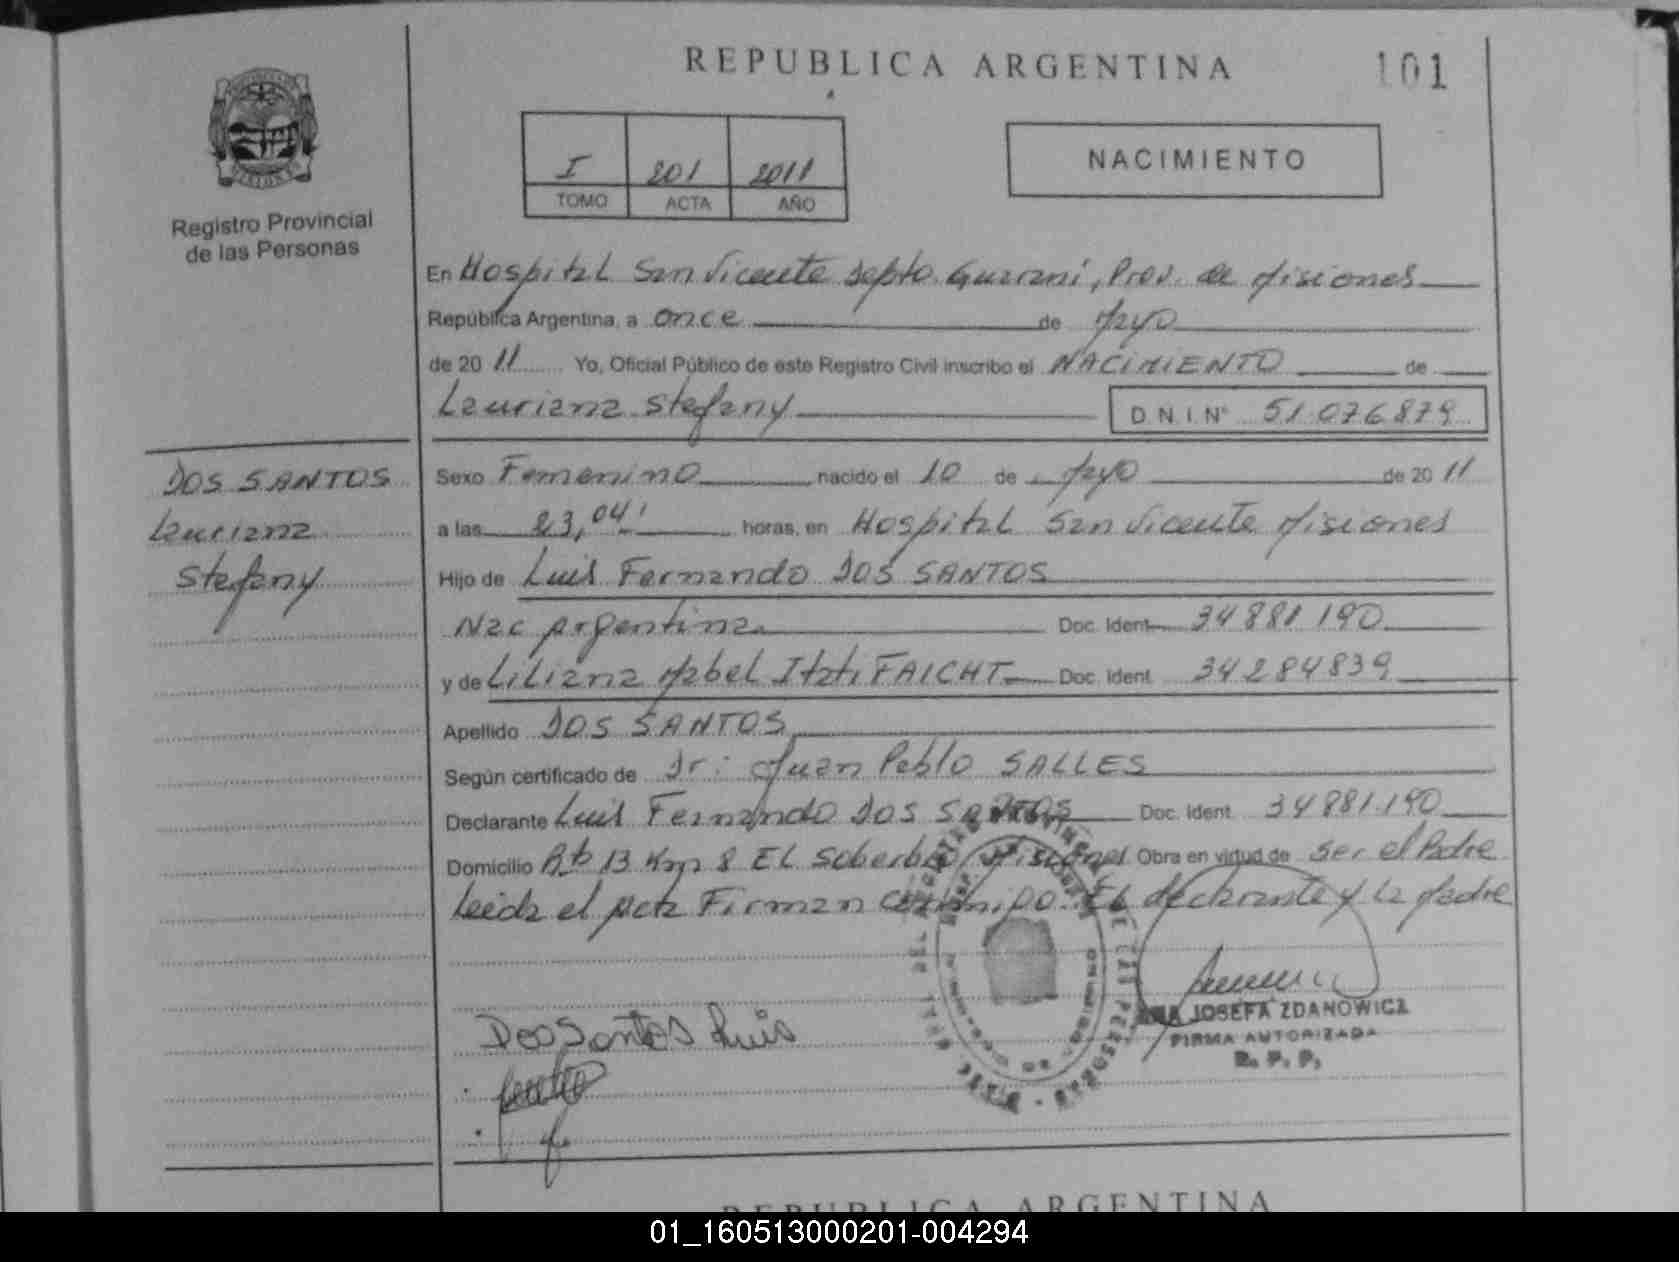 REPUBLICA ARGENTINA
101
I 201 2011
TOMO ACTA AÑO
NACIMIENTO
Registro Provincial
de las Personas
En Hospital San Vicente Depto. Guarani, Prov. de Misiones
República Argentina, a once de Mayo
de 20 11 Yo, Oficial Público de este Registro Civil inscribo el NACIMIENTO de
Lauriana Stefany D.N.I. N° 51.076.879
DOS SANTOS
Lauriana
Stefany
Sexo Femenino nacido el 10 de Mayo de 20 11
a las 23,04' horas, en Hospital San Vicente Misiones
Hijo de Luis Fernando DOS SANTOS
Nac Argentina Doc. Ident. 34 881 190
y de Liliana Mabel Itati FAICHT Doc. Ident. 34 284 839
Apellido DOS SANTOS
Según certificado de Dr: Juan Pablo SALLES
Declarante Luis Fernando DOS SANTOS Doc. Ident. 34 881.190
Domicilio Rta 13 Km 8 EL Soberbio Misiones Obra en virtud de ser el Padre
Leida el Acta Firman conmigo El declarante y la Madre
Dos Santos Luis
ANA JOSEFA ZDANOWICZ
FIRMA AUTORIZADA
R. P. P.
REPUBLICA ARGENTINA
01_160513000201-004294